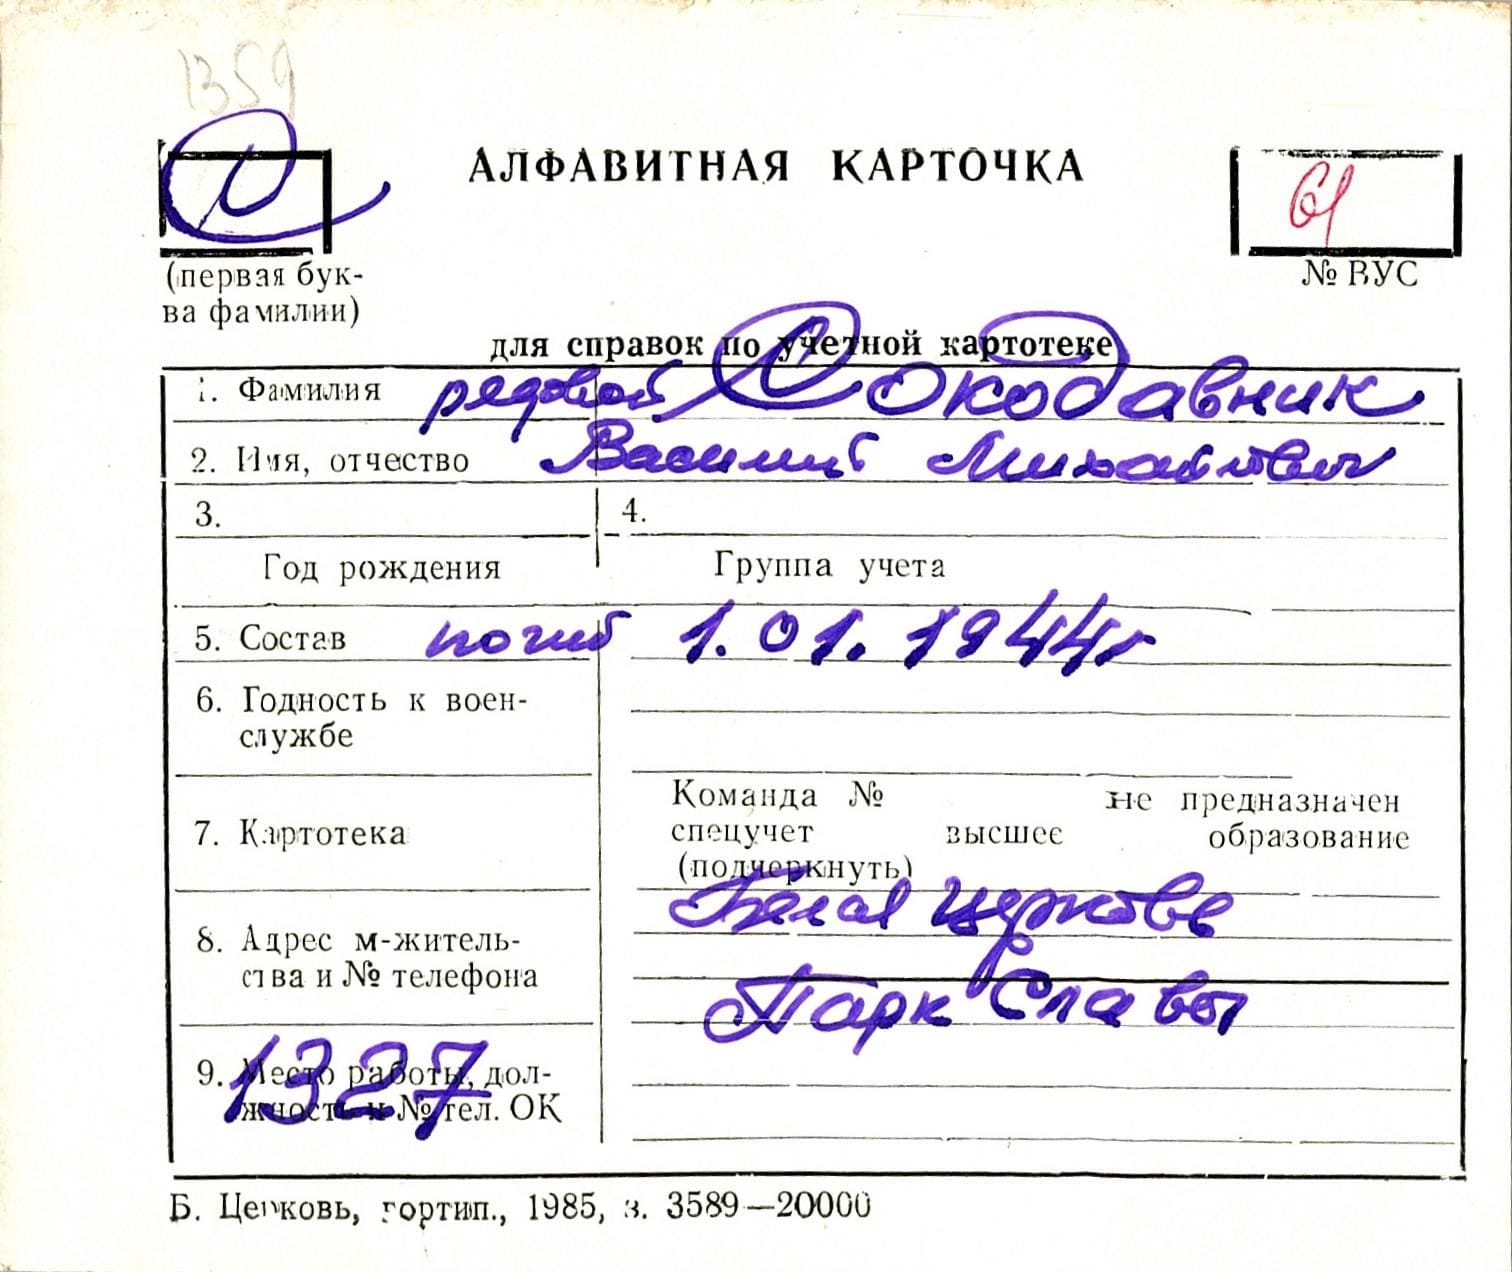 1359
С
АЛФАВИТНАЯ КАРТОЧКА
61
(первая бук-
ва фамилии)
№ ВУС
для справок по учетной картотеке
1. Фамилия рядовой Сокодавник
2. Имя, отчество Василий Михайлович
3.
4.
Год рождения
Группа учета
5. Состав погиб 1.01.1944г
6. Годность к воен-
службе
7. Картотека
Команда № не предназначен
спецучет высшее образование
(подчеркнуть)
8. Адрес м-житель-
ства и № телефона
Белая Церковь
Парк Славы
9. Место работы, дол-
жность и № тел. ОК
1327
Б. Церковь, гортип., 1985, з. 3589—20000